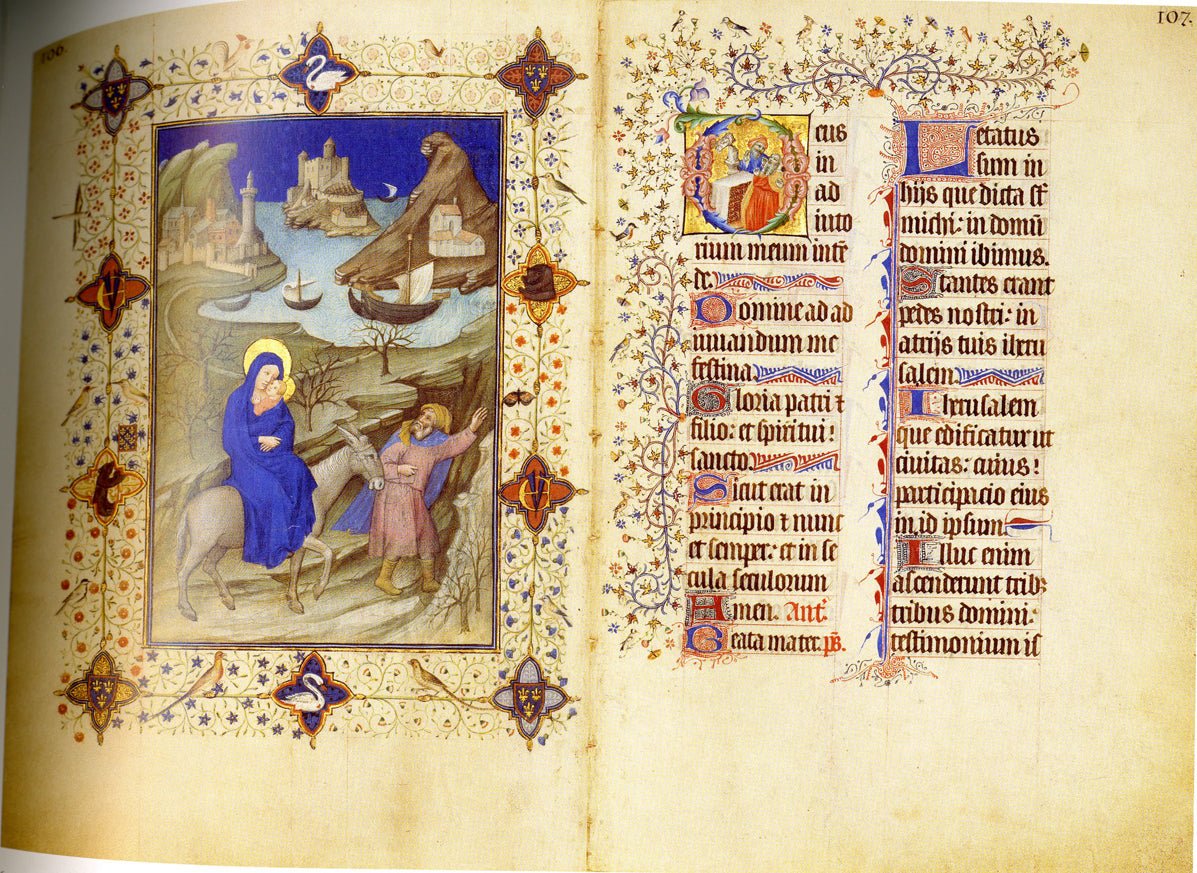 106.
107.
Deus
in
ad
iuto
rium meum intē
de.
Domine ad ad
iuuandum me
festina.
Gloria patri ⁊
filio: et spiritui!
sancto
Sicut erat in
principio ⁊ nunc
et semper: et in se
cula seculorum
Amen. Ant̄.
Beata mater. p̄s.
Letatus
sum in
hijs que dicta st̄
michi: in domū
domini ibimus.
Stantes erant
pedes nostri: in
atrijs tuis iheru
salem
Iherusalem
que edificatur ut
ciuitas: cuius!
participacio eius
in id ipsum
Illuc enim
ascenderunt tribꝫ
tribus domini:
testimonium is